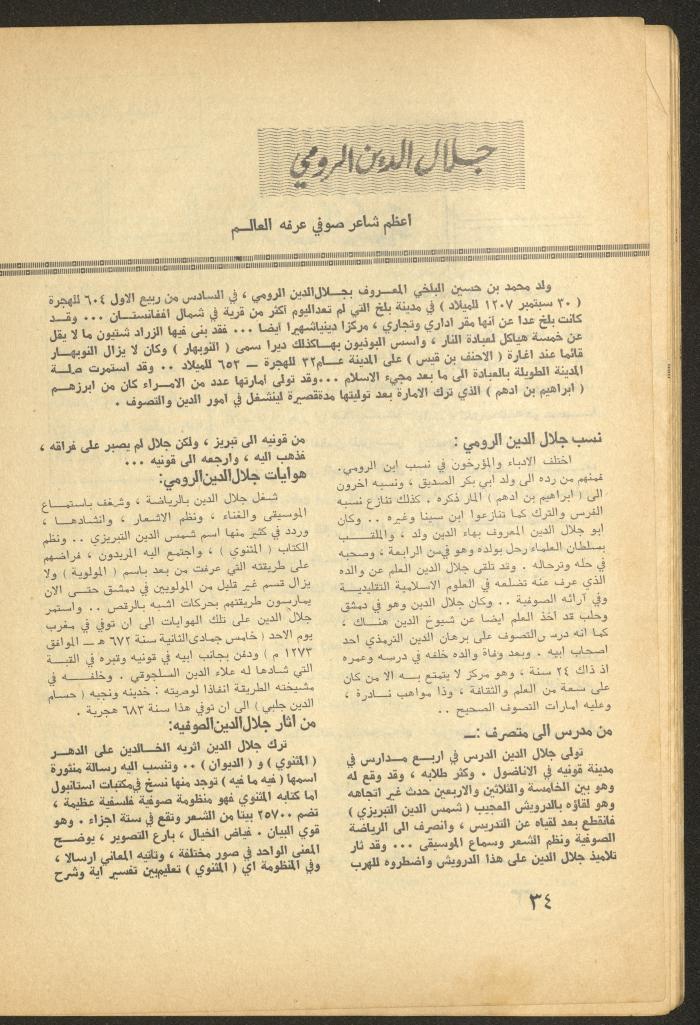 جلال الدين الرومي
اعظم شاعر صوفي عرفه العالـم
ولد محمد بن حسين البلخي المعروف بجلال الدين الرومي ، في السادس من ربيع الاول ٦٠٤ للهجرة
( ٣٠ سبتمبر ١٢٠٧ للميلاد ) في مدينة بلخ التي لم تعد اليوم أكثر من قرية في شمال افغانستان ... وقد
كانت بلخ عدا عن أنها مقر اداري وتجاري ، مركزا دينيا شهيرا ايضا ... فقد بنى فيها الزراد شتيون ما لا يقل
عن خمسة هياكل لعبادة النار ، واسس البوذيون بها كذلك ديرا سمى ( النوبهار ) وكان لا يزال النوبهار
قائما عند اغارة ( الاحنف بن قيس ) على المدينة عام ٣٢ للهجرة ـ ٦٥٣ للميلاد .. وقد استمرت صلة
المدينة الطويلة بالعبادة الى ما بعد مجيء الاسلام ... وقد تولى امارتها عدد من الامراء كان من ابرزهم
( ابراهيم بن ادهم ) الذي ترك الامارة بعد توليتها مدة قصيرة لينشغل في امور الدين والتصوف .
نسب جلال الدين الرومي :
اختلف الادباء والمؤرخون في نسب ابن الرومي.
فمنهم من رده الى ولد ابي بكر الصديق ، ونسبه اخرون
الى ( ابراهيم بن ادهم ) المار ذكره . كذلك تنازع نسبه
الفرس والترك كما تنازعوا ابن سينا وغيره .. وكان
ابو جلال الدين المعروف بهاء الدين ولد ، والملقب
بسلطان العلماء رحل بولده وهو في سن الرابعة ، وصحبه
في حله وترحاله . وقد تلقى جلال الدين العلم عن والده
الذي عرف عنه تضلعه في العلوم الاسلامية التقليدية
وفي آرائه الصوفية .. وكان جلال الدين وهو في دمشق
وحلب قد اخذ العلم ايضا عن شيوخ الدين هناك ،
كما انه درس التصوف على برهان الدين الترمذي احد
اصحاب ابيه . وبعد وفاة والده خلفه في درسه وعمره
اذ ذاك ٢٤ سنة ، وهو مركز لا يتمتع به الا من كان
على سعة من العلم والثقافة ، وذا مواهب نادرة ،
وعليه امارات التصوف الصحيح ..
من مدرس الى متصرف :ـ
تولى جلال الدين الدرس في اربع مدارس في
مدينة قونيه في الاناضول . وكثر طلابه ، وقد وقع له
وهو بين الخامسة والثلاثين والاربعين حدث غير اتجاهه
وهو لقاؤه بالدرويش العجيب ( شمس الدين التبريزي )
فانقطع بعد لقياه عن التدريس ، وانصرف الى الرياضة
الصوفية ونظم الشعر وسماع الموسيقى ... وقد ثار
تلاميذ جلال الدين على هذا الدرويش واضطروه للهرب
من قونيه الى تبريز ، ولكن جلال لم يصبر على فراقه ،
فذهب اليه ، وارجعه الى قونيه ...
هوايات جلال الدين الرومي:
شغل جلال الدين بالرياضة ، وشغف باستماع
الموسيقى والغناء ، ونظم الاشعار ، وانشادها ،
وردد في كثير منها اسم شمس الدين التبريزي .. ونظم
الكتاب ( المثنوي ) ، واجتمع اليه المريدون ، فراضهم
على طريقته التي عرفت من بعد باسم ( المولوية ) ولا
يزال قسم غير قليل من المولويين في دمشق حتى الان
يمارسون طريقتهم بحركات اشبه بالرقص .. واستمر
جلال الدين على تلك الهوايات الى ان توفي في مغرب
يوم الاحد ( خامس جمادى الثانية سنة ٦٧٢ هـ ـ الموافق
١٢٧٣ م ) ودفن بجانب ابيه في قونيه وقبره في القبة
التي شادها له علاء الدين السلجوقي . وخلفه في
مشيخته الطريقة انفاذا لوصيته : خدينه ونجيه ( حسام
الدين جلبي ) الى ان توفي هذا سنة ٦٨٣ هجرية .
من آثار جلال الدين الصوفيه:
ترك جلال الدين اثريه الخالدين على الدهر
( المثنوي ) و ( الديوان ) .. وتنسب اليه رسالة منثورة
اسمها ( فيه ما فيه ) توجد منها نسخ في مكتبات استانبول
اما كتابه المثنوي فهو منظومة صوفية فلسفية عظيمة ،
تضم ٢٥٧٠٠ بيتا من الشعر وتقع في ستة اجزاء . وهو
قوي البيان . فياض الخيال ، بارع التصوير ، يوضح
المعنى الواحد في صور مختلفة ، وتاتيه المعاني ارسالا ،
وفي المنظومة اي ( المثنوي ) تعليم بين تفسير آية وشرح
٣٤